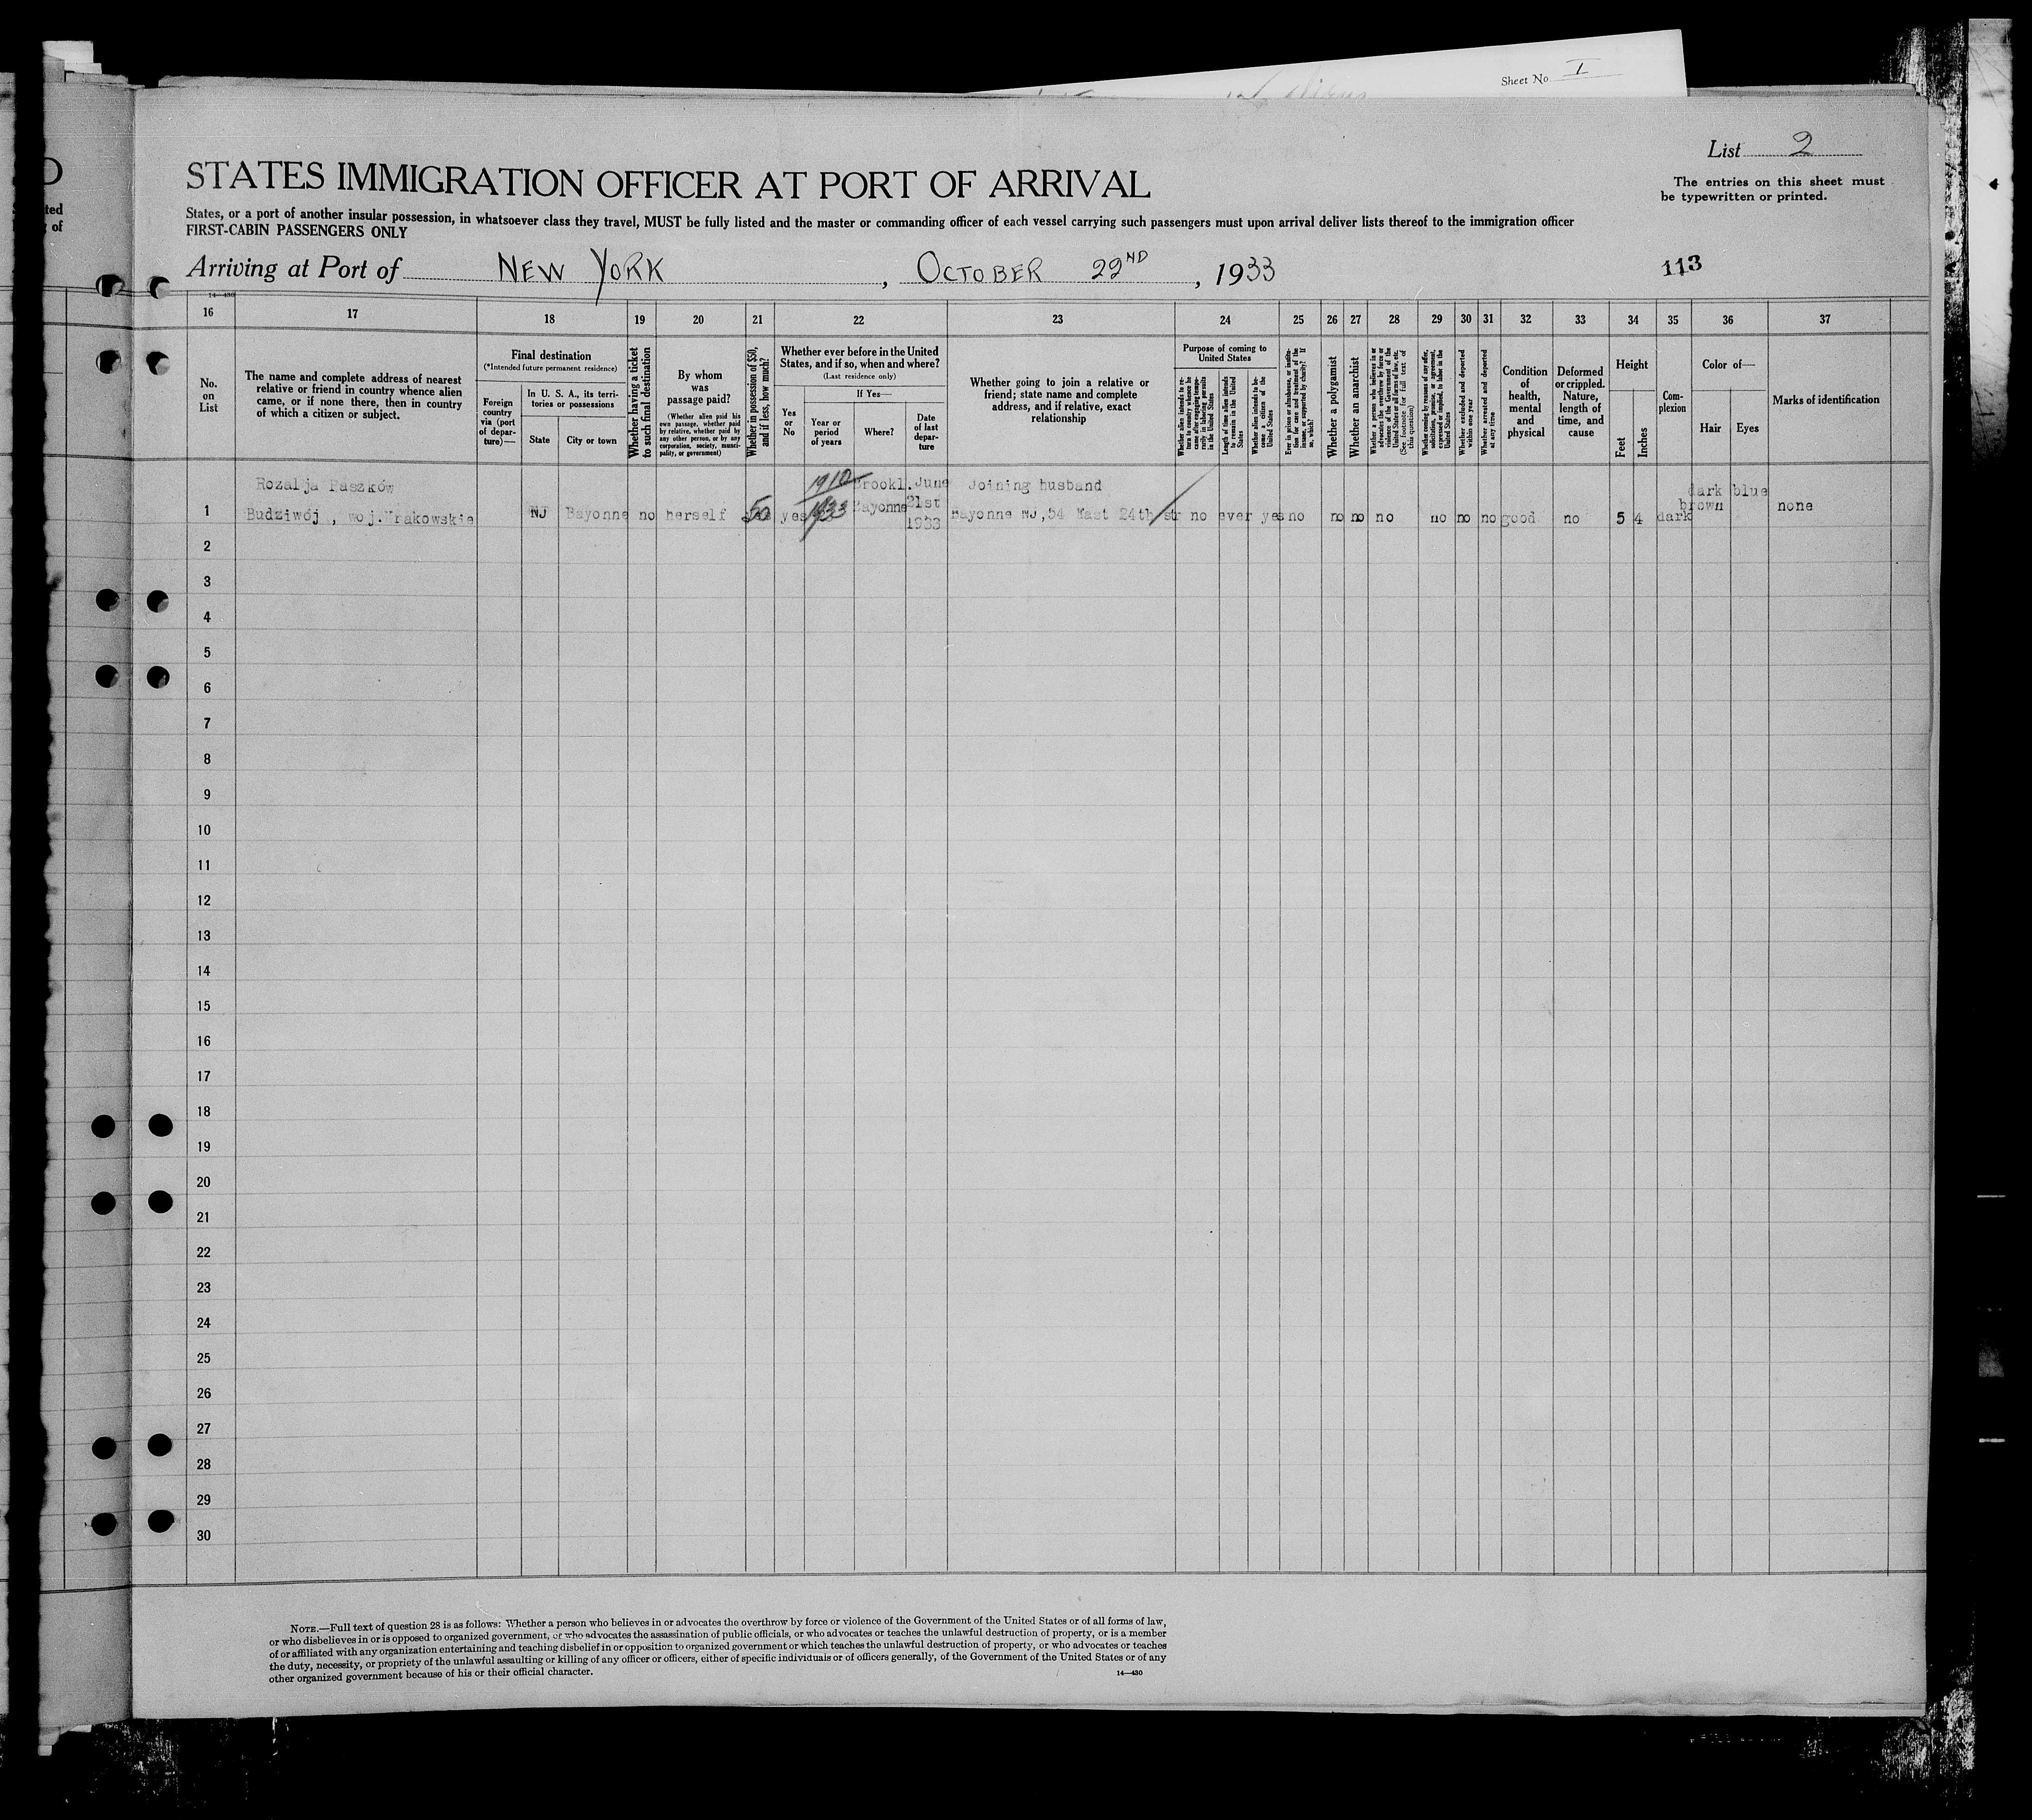 Sheet No I
List 2
The entries on this sheet must
be typewritten or printed.
STATES IMMIGRATION OFFICER AT PORT OF ARRIVAL
States, or a port of another insular possession, in whatsoever class they travel, MUST be fully listed and the master or commanding officer of each vessel carrying such passengers must upon arrival deliver lists thereof to the immigration officer
FIRST-CABIN PASSENGERS ONLY
Arriving at Port of NEW YORK, OCTOBER 22ND, 1933
113
14—430
16 17 18 19 20 21 22 23 24 25 26 27 28 29 30 31 32 33 34 35 36 37
No. on List
The name and complete address of nearest relative or friend in country whence alien came, or if none there, then in country of which a citizen or subject.
Final destination
(*Intended future permanent residence)
Foreign country via (port of departure)—
In U. S. A., its territories or possessions
State
City or town
Whether having a ticket to such final destination
By whom was passage paid?
(Whether alien paid his own passage, whether paid by relative, whether paid by any other person, or by any corporation, society, municipality, or government)
Whether in possession of $50, and if less, how much?
Whether ever before in the United States, and if so, when and where?
(Last residence only)
If Yes—
Yes or No
Year or period of years
Where?
Date of last departure
Whether going to join a relative or friend; state name and complete address, and if relative, exact relationship
Purpose of coming to United States
Whether alien intends to return to country whence he came after engaging temporarily in laboring pursuits in the United States
Length of time alien intends to remain in the United States
Whether alien intends to become a citizen of the United States
Ever in prison or almshouse, or institution for care and treatment of the insane, or supported by charity? If so, which?
Whether a polygamist
Whether an anarchist
Whether a person who believes in or advocates the overthrow by force or violence of the Government of the United States or all forms of law, etc. (See footnote for full text of this question)
Whether coming by reason of any offer, solicitation, promise, or agreement, expressed or implied, to labor in the United States
Whether excluded and deported within one year
Whether arrested and deported at any time
Condition of health, mental and physical
Deformed or crippled. Nature, length of time, and cause
Height
Feet
Inches
Complexion
Color of—
Hair
Eyes
Marks of identification
Rozalja Paszków 1910 Brookl. June Joining husband dark blue
1 Budziwój, woj. Krakowskie NJ Bayonne no herself 50 yes 1933 Bayonne 21st 1933 Bayonne NJ, 54 East 24th str no ever yes no no no no no no no good no 5 4 dark brown none
2
3
4
5
6
7
8
9
10
11
12
13
14
15
16
17
18
19
20
21
22
23
24
25
26
27
28
29
30
NOTE.—Full text of question 28 is as follows: Whether a person who believes in or advocates the overthrow by force or violence of the Government of the United States or of all forms of law,
or who disbelieves in or is opposed to organized government, or who advocates the assassination of public officials, or who advocates or teaches the unlawful destruction of property, or is a member
of or affiliated with any organization entertaining and teaching disbelief in or opposition to organized government or which teaches the unlawful destruction of property, or who advocates or teaches
the duty, necessity, or propriety of the unlawful assaulting or killing of any officer or officers, either of specific individuals or of officers generally, of the Government of the United States or of any
other organized government because of his or their official character.
14—430